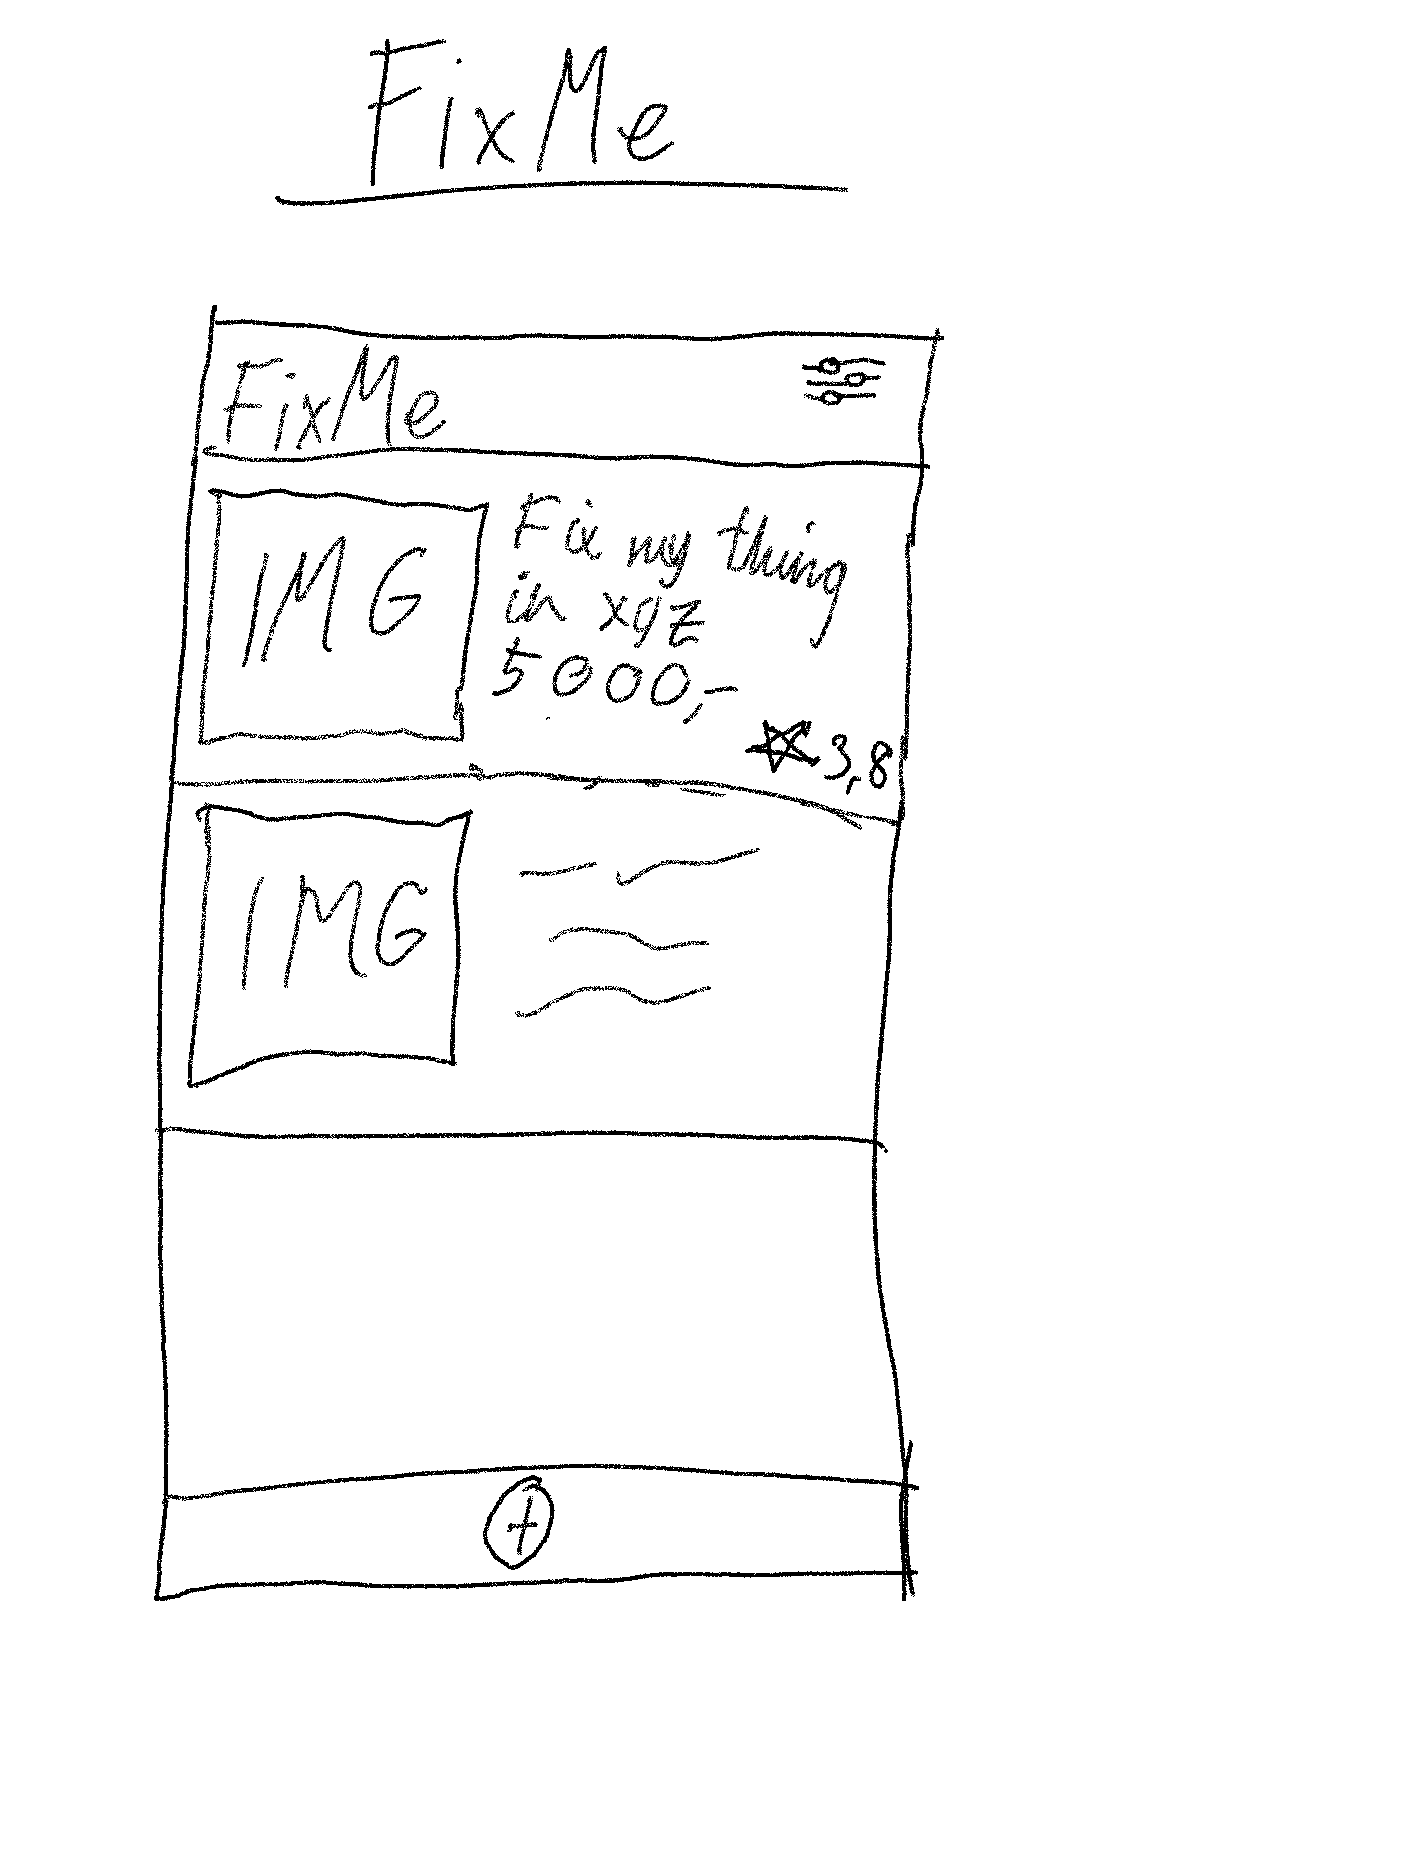 FixMe
FixMe
IMG
Fix my thing
in xyz
5000,-
3,8
IMG
+